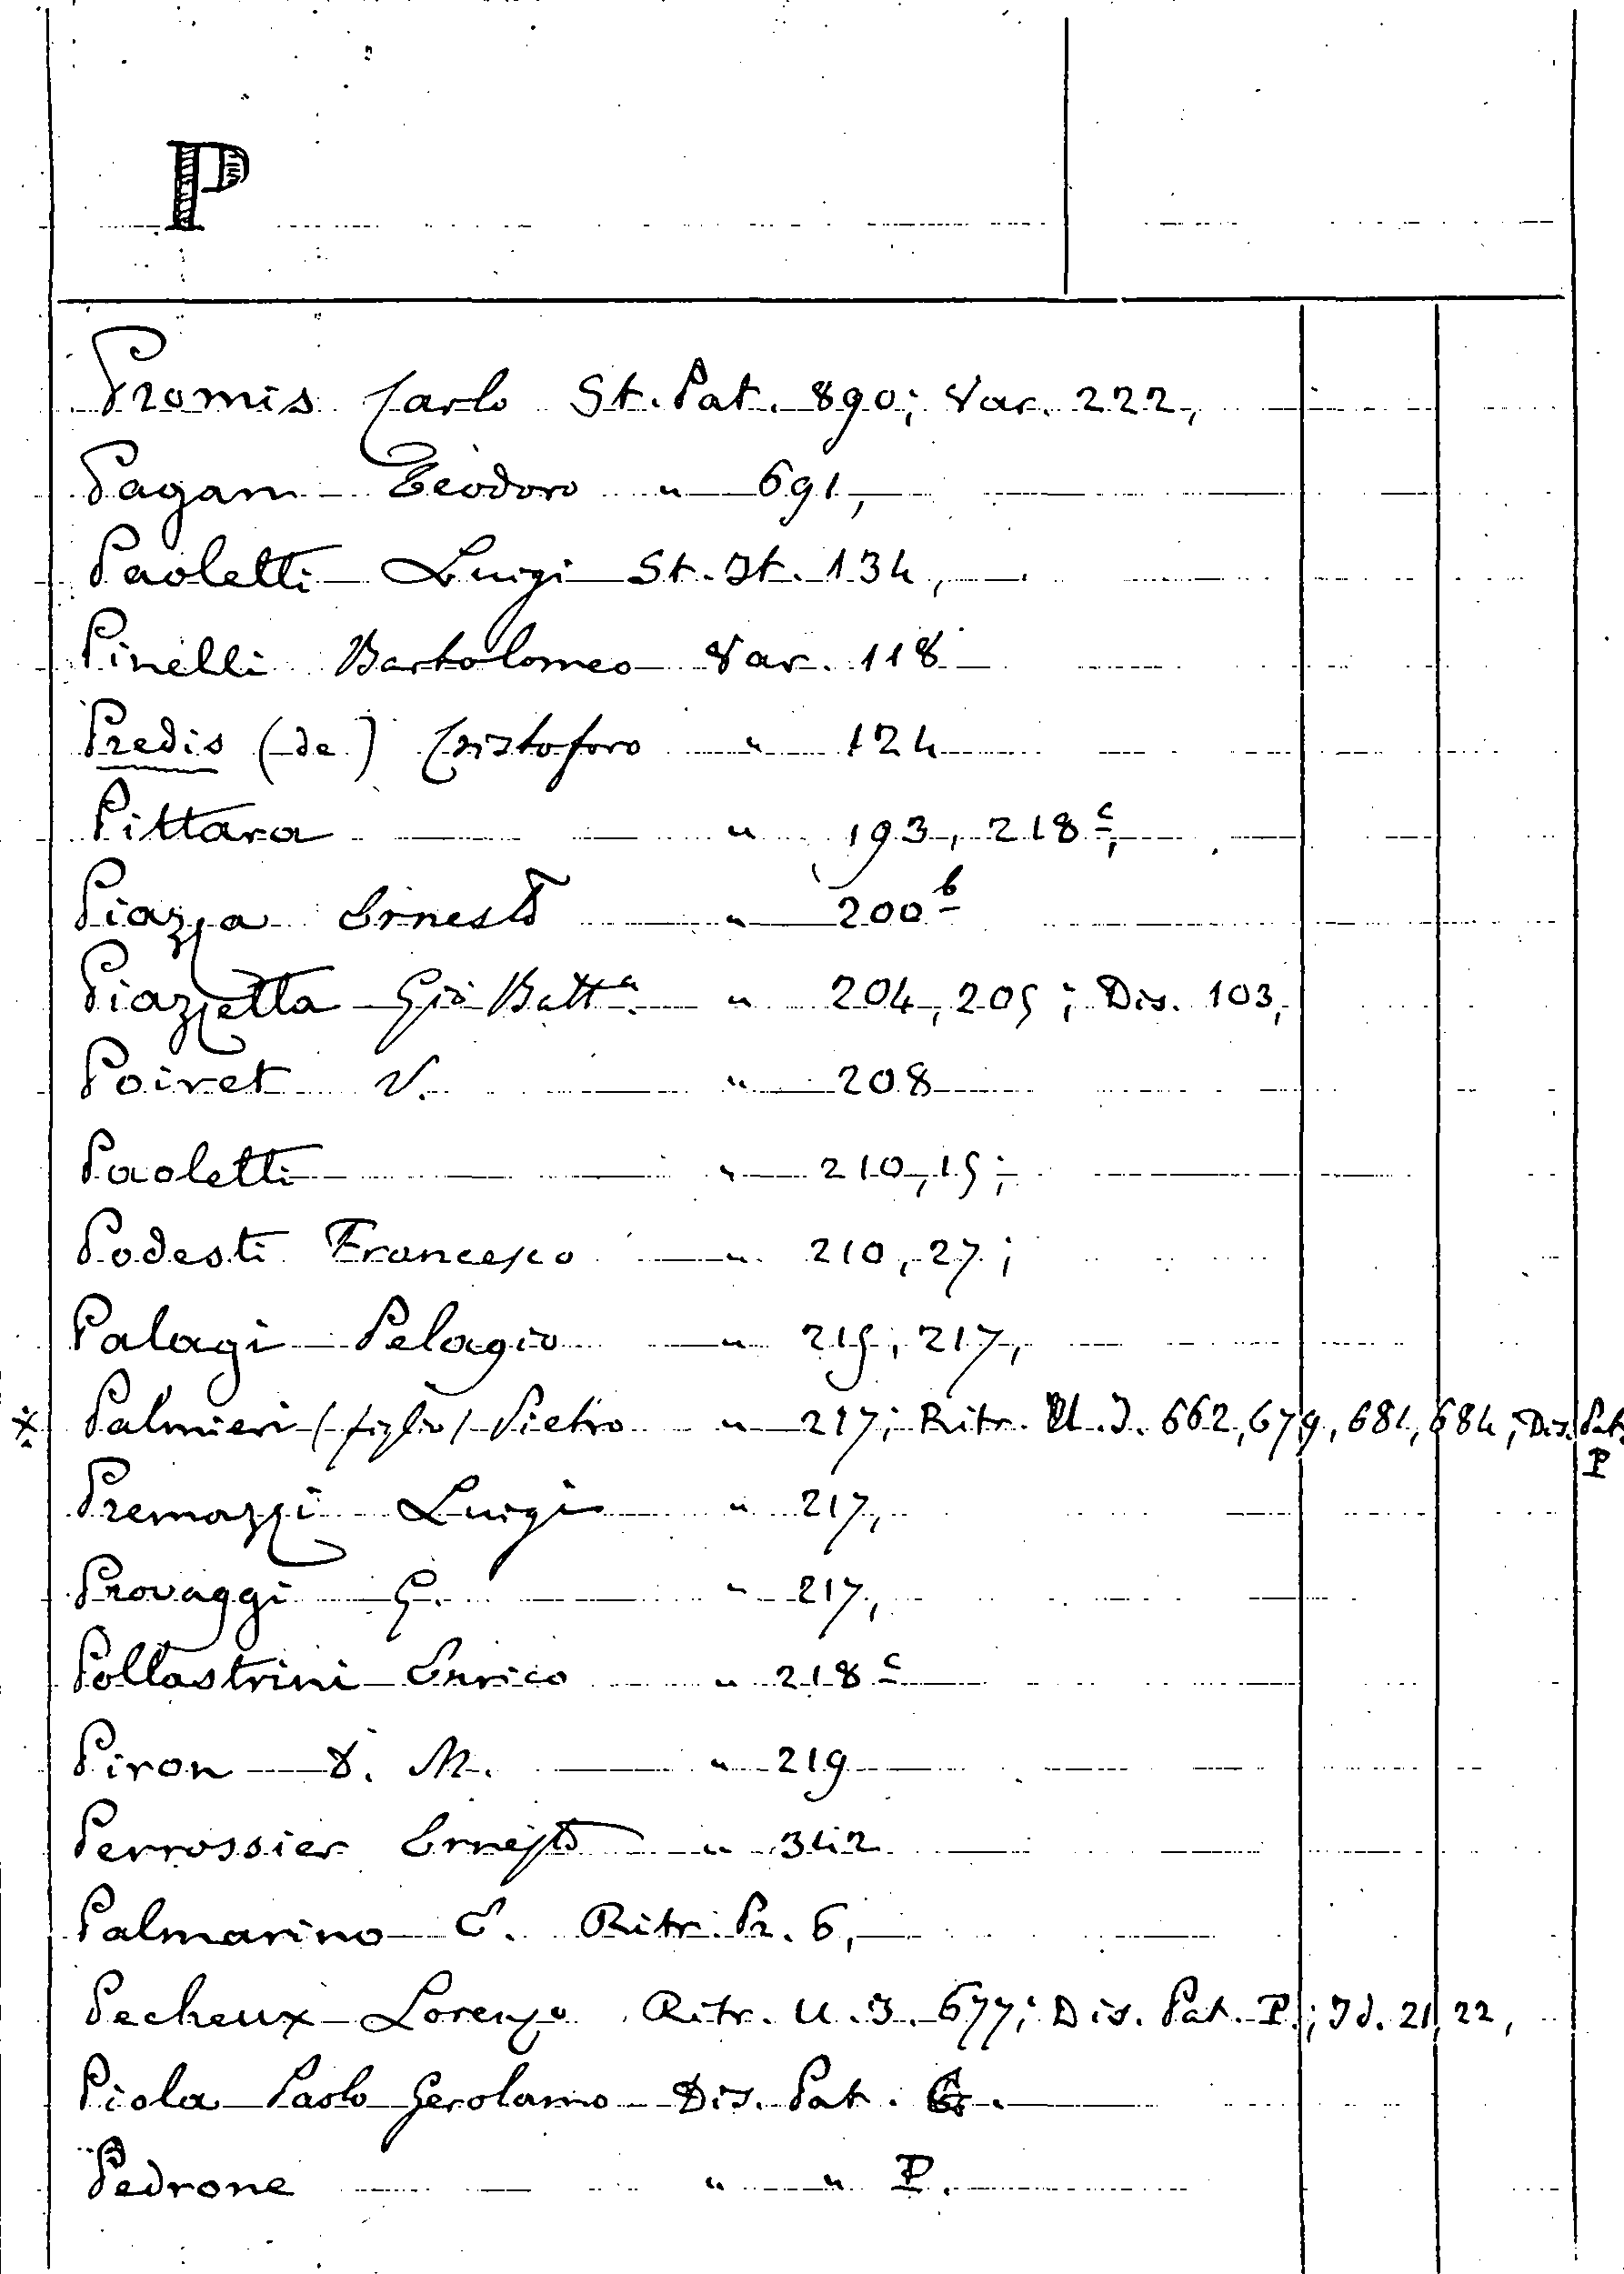 P
Promis Carlo St. Pat. 890; Var. 222,
Pagani Teodoro " 691,
Paoletti Luigi St. It. 134,
Pinelli Bartolomeo Var. 118
Predis (de) Cristoforo " 124
Pittara " 193, 218 c,
Piazza Ernesto " 200 b
Piazzetta Gio Batt.a " 204, 205; Dis. 103,
Poiret V. " 208
Paoletti " 210, 15;
Podesti Francesco " 210, 27;
Palagi Pelagio " 215, 217,
x Palmieri (figlio) Pietro " 217; Ritr. U. I. 662, 679, 681, 684; Dis. Pat.
P
Premazzi Luigi " 217,
Provaggi G. " 217,
Pollastrini Enrico " 218 c
Piron M. " 219
Perrossier Ernesto " 342
Palmarino E. Ritr. Pr. 6,
Pecheux Lorenzo Ritr. U. I. 677; Dis. Pat. P.; Id. 21, 22,
Piola Paolo Gerolamo Dis. Pat. G.
Pedrone " " P.